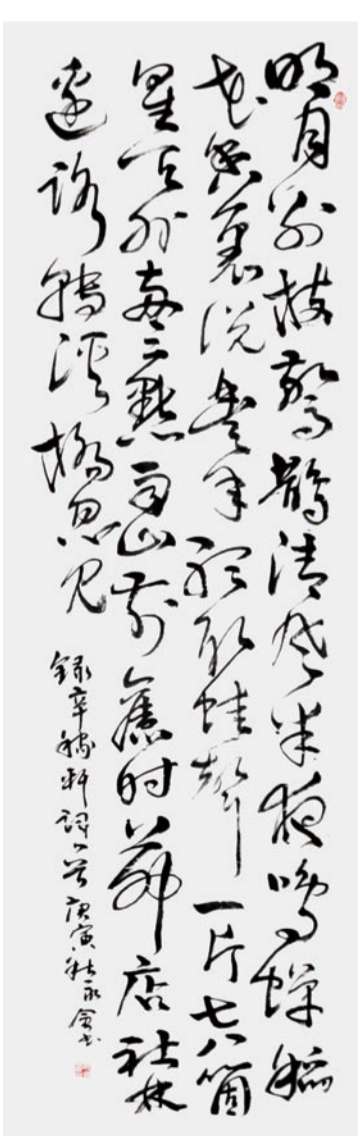 明月别枝驚鵲清風半夜鳴蟬稻
花香裏説豊年聽取蛙聲一片七八箇
星天外兩三點雨山前舊时茅店社林
邊路轉溪橋忽見
録辛稼軒詞一首庚寅秋永會書